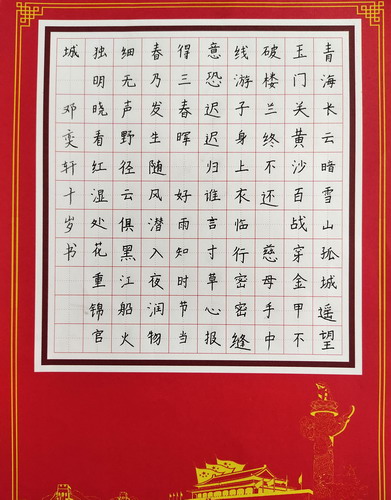 青海长云暗雪山孤城遥望
玉门关黄沙百战穿金甲不
破楼兰终不还 慈母手中
线游子身上衣临行密密缝
意恐迟迟归谁言寸草心报
得三春晖 好雨知时节当
春乃发生随风潜入夜润物
细无声野径云俱黑江船火
独明晓看红湿处花重锦官
城 邓奕轩十岁书